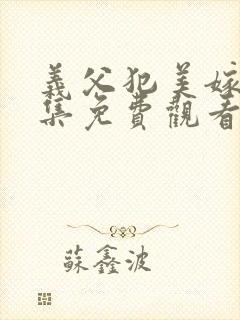 義父犯美嫁
集免費觀看
蘇鑫波